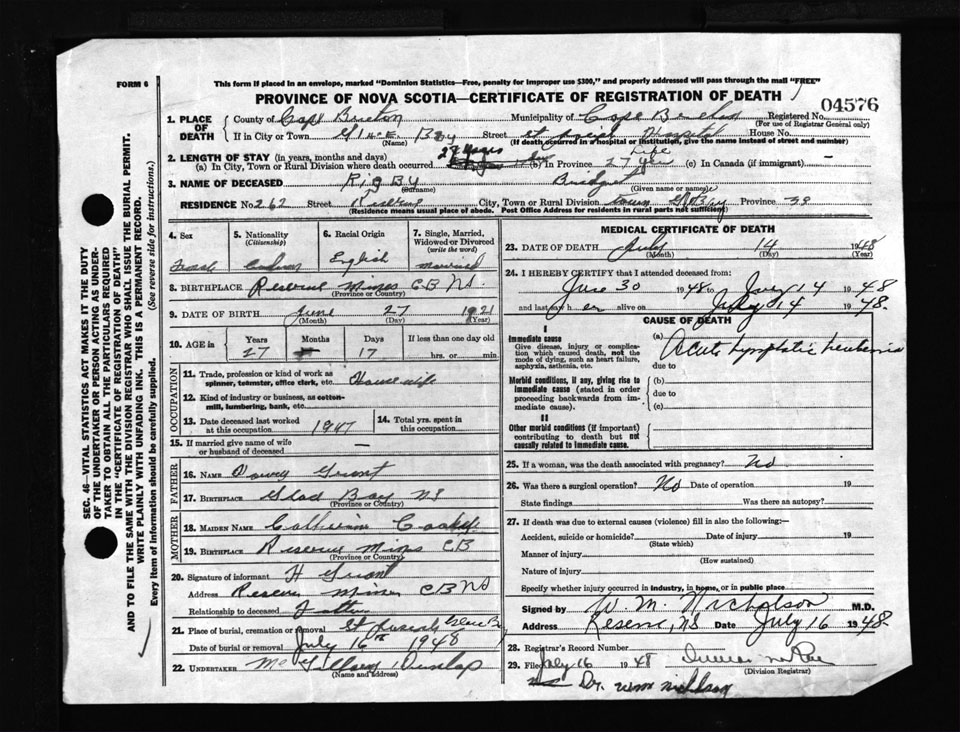 FORM 6
This form if placed in an envelope, marked "Dominion Statistics—Free, penalty for improper use $300," and properly addressed will pass through the mail "FREE"
PROVINCE OF NOVA SCOTIA—CERTIFICATE OF REGISTRATION OF DEATH
04576
1. PLACE OF DEATH County of Cape Breton Municipality of Cape Breton Registered No.
(For use of Registrar General only)
If in City or Town Glace Bay Street St Joseph Hospital House No.
(If death occurred in a hospital or institution, give the name instead of street and number)
2. LENGTH OF STAY (in years, months and days)
(a) In City, Town or Rural Division where death occurred 27 (b) In Province Life 27 yrs (c) In Canada (if immigrant) —
3. NAME OF DECEASED Rigby Bridget
(Surname) (Given name or names)
RESIDENCE No 262 Street Reserve City, Town or Rural Division Province
(Residence means usual place of abode. Post Office Address for residents in rural parts not sufficient)
4. Sex 5. Nationality (Citizenship) 6. Racial Origin 7. Single, Married, Widowed or Divorced (write the word)
Female English married
8. BIRTHPLACE Reserve Mines CB NS.
(Province or Country)
9. DATE OF BIRTH June 27 1921
(Month) (Day) (Year)
10. AGE in Years Months Days If less than one day old
27 17 hrs. or min.
OCCUPATION
11. Trade, profession or kind of work as spinner, teamster, office clerk, etc. House wife
12. Kind of industry or business, as cotton-mill, lumbering, bank, etc.
13. Date deceased last worked at this occupation 1947 14. Total yrs. spent in this occupation
15. If married give name of wife or husband of deceased —
FATHER
16. NAME Grant
17. BIRTHPLACE Bay NS
MOTHER
18. MAIDEN NAME Catherine
19. BIRTHPLACE Reserve Mines CB
(Province or Country)
20. Signature of informant H Grant
Address Reserve Mines CB NS
Relationship to deceased Father
21. Place of burial, cremation or removal St Joseph Glace B
Date of burial or removal July 16th 1948
22. UNDERTAKER Dunlap
(Name and address)
MEDICAL CERTIFICATE OF DEATH
23. DATE OF DEATH July 14 1948
(Month) (Day) (Year)
24. I HEREBY CERTIFY that I attended deceased from:
June 30 1948 to July 14 1948
and last saw h er alive on July 14 1948.
CAUSE OF DEATH
I
Immediate cause
Give disease, injury or complication which caused death, not the mode of dying, such as heart failure, asphyxia, asthenia, etc.
(a) Acute Lymphatic Leukemia
due to
Morbid conditions, if any, giving rise to immediate cause (stated in order proceeding backwards from immediate cause).
(b)
due to
(c)
II
Other morbid conditions (if important) contributing to death but not causally related to immediate cause.
25. If a woman, was the death associated with pregnancy? No
26. Was there a surgical operation? No Date of operation 19
State findings Was there an autopsy?
27. If death was due to external causes (violence) fill in also the following:—
Accident, suicide or homicide? Date of injury 19
(State which)
Manner of injury
(How sustained)
Nature of injury
Specify whether injury occurred in industry, in home, or in public place
Signed by W. M. Nicholson M.D.
Address Reserve, NS Date July 16 1948
28. Registrar's Record Number
29. Filed July 16 1948
(Division Registrar)
Dr. Wm Nicholson
SEC. 46—VITAL STATISTICS ACT MAKES IT THE DUTY
OF THE UNDERTAKER OR PERSON ACTING AS UNDER-
TAKER TO OBTAIN ALL THE PARTICULARS REQUIRED
IN THE "CERTIFICATE OF REGISTRATION OF DEATH"
AND TO FILE THE SAME WITH THE DIVISION REGISTRAR WHO SHALL ISSUE THE BURIAL PERMIT.
WRITE PLAINLY WITH UNFADING INK. THIS IS A PERMANENT RECORD.
Every item of information should be carefully supplied. (See reverse side for instructions.)